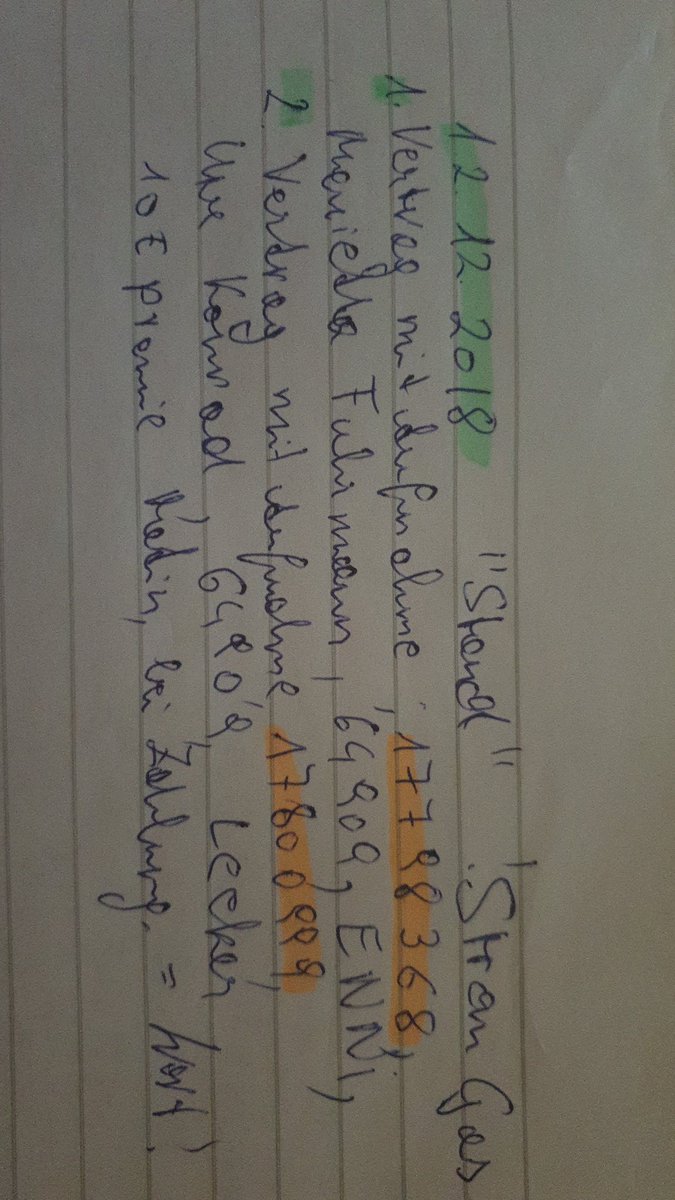 12.12.2018 "Stand" Strom Gas
1. Vertrag mit Aufnahme 17798368,
Fuhrmann, 64909, ENNI,
2. Vertrag mit Aufnahme 17800999,
Uwe Konrad, 64909, Lecker,
10 € Prämie bei Zahlung. =